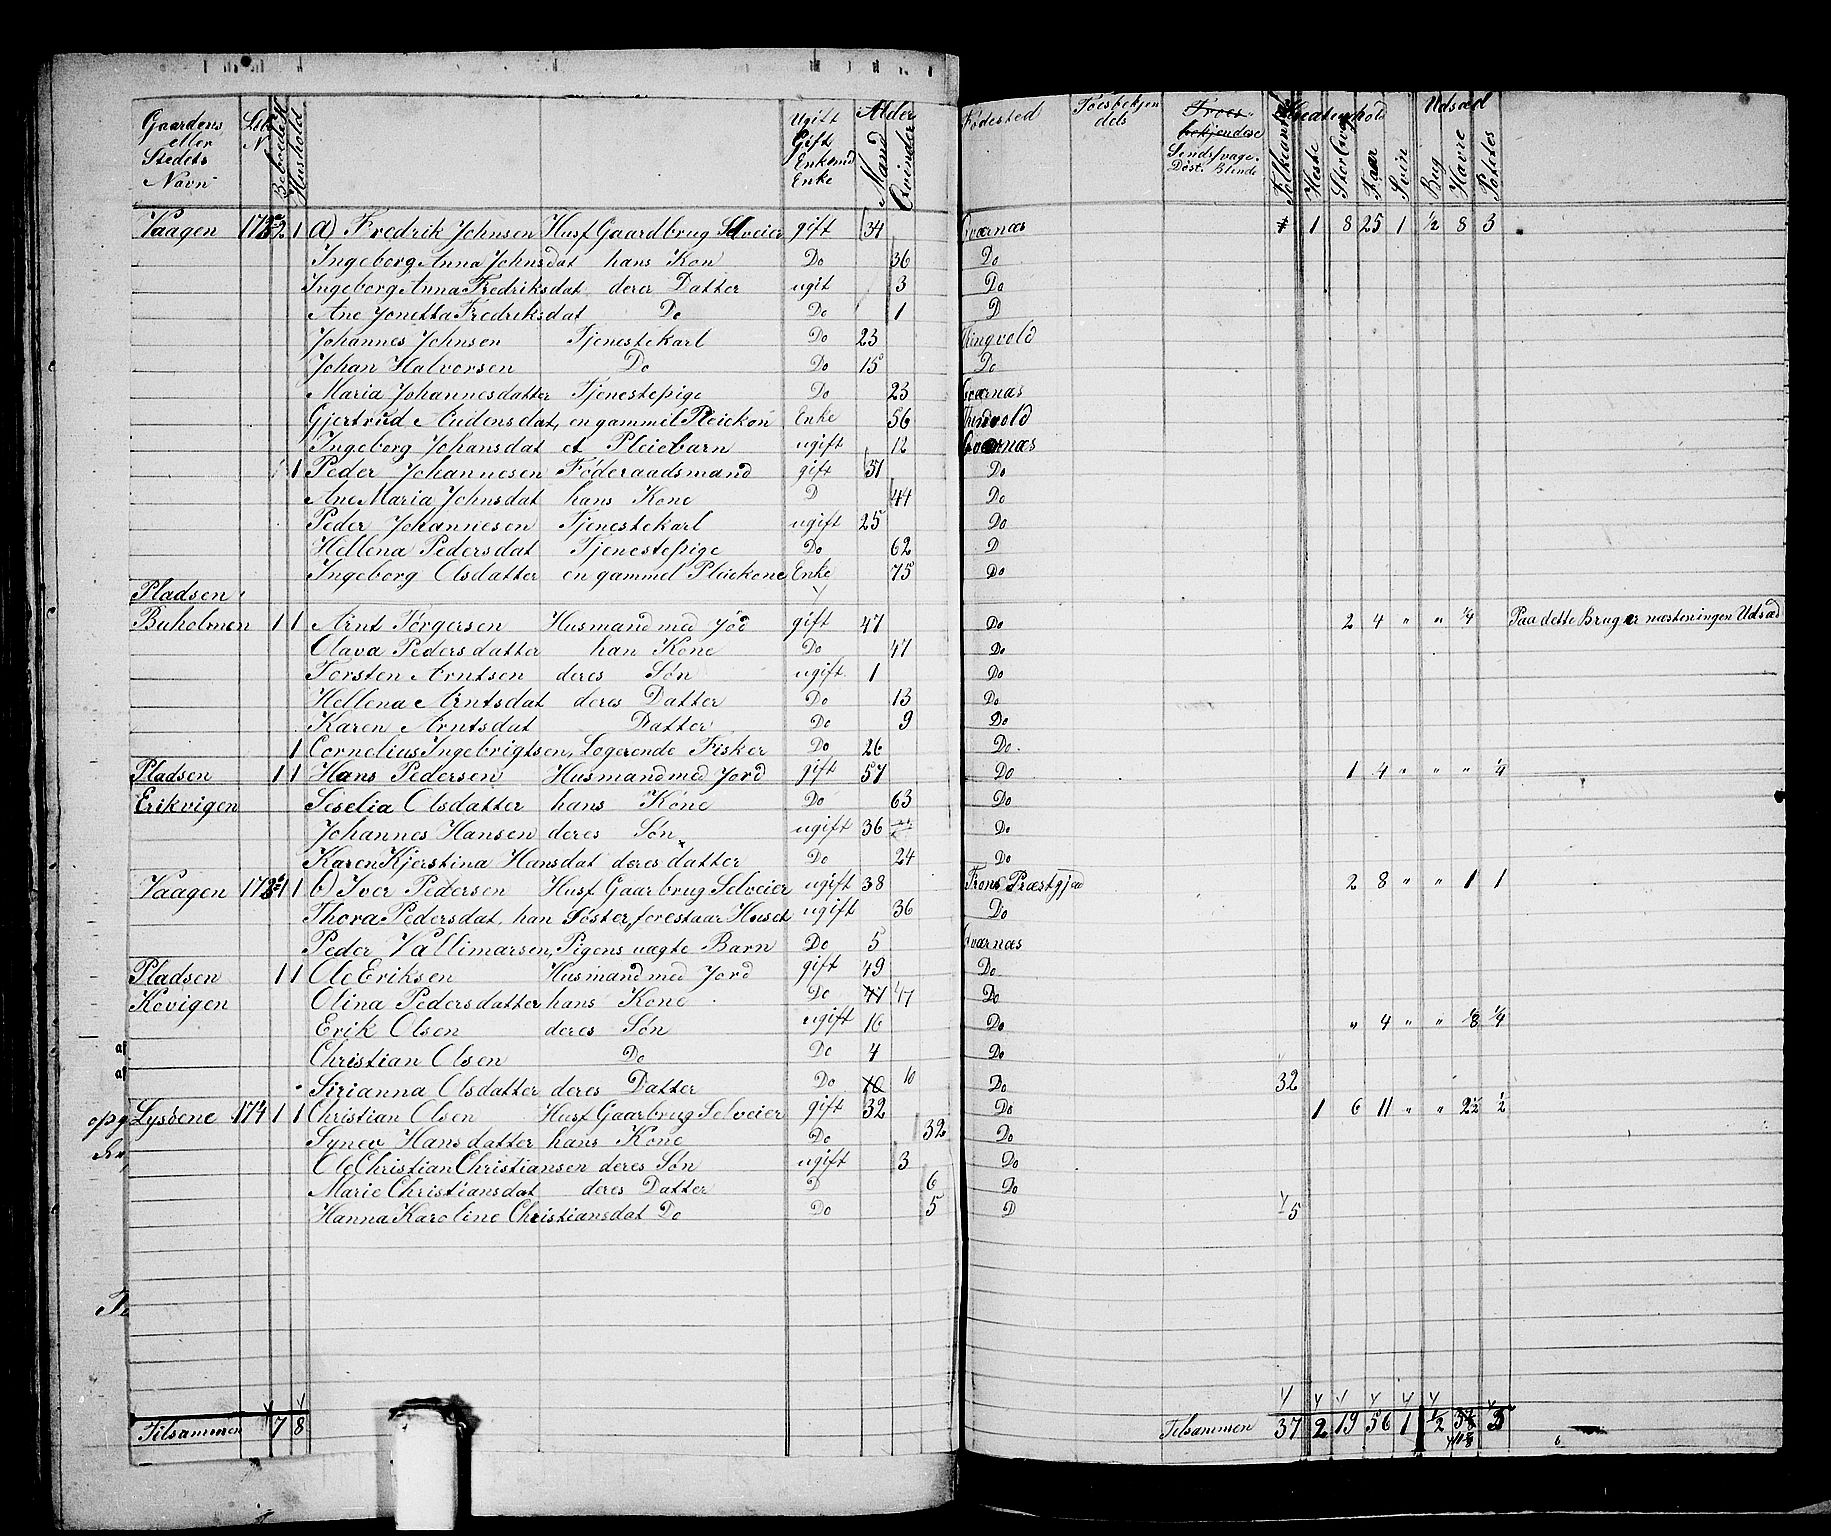 Gaardens eller Stedets Navn | Beboede H | Hushold | Ugift Gift Enkemd Enke | Alder Mand Qvinder | Fødested | Troesbekjendels | Sindsfvage. Døst. Blinde | Folkeantal | Kreaturhold Heste Stor Qvæg Faar Svin | Udsæd Byg Havre Potetes
Vaagen 2 1 a) Fredrik Johnsen Husf Gaardbrug Selveier gift 34 Qværnæs 1 8 25 1 ½ 8 3
Ingeborg Anna Johnsdat hans Kon Do 36 Do
Ingeborg Anna Fredriksdat derer Datter ugit 3 Do
Ane Jonetta Fredriksdat Do Do 1 D
Johannes Johnsen Tjenestekarl Do 23 Thingvold
Johan Halvorsen Do Do 15 Do
Maria Johannesdatter Tjenestepige Do 23 Qværnæs
Gjertrud Audensdat, en gammel Pleiekon Enke 56 Thindvold
Ingeborg Johansdat et Pleiebarn ugift 12 Qværnæs
1 Peder Johannesen Føderaadsmand gift 51 Do
Ane Maria Johnsdat hans Kone D 44 Do
Peder Johannesen Tjenestekarl ugift 25 Do
Hellena Pedersdat Tjenestepige Do 62 D
Ingeborg Olsdatter en gammel Pleiekone Enke 75 Do
Pladsen
Buholmen 1 1 Arnt Tørgersen Husmand med Jód gift 47 Do 2 4 " " ¼ Paa dette Brug er næsten ingen Udsæd
Olava Pedersdatter han Kone Do 47 Do
Torsten Arntsen deres Søn ugift. 1 Do
Hellena Arntsdat deres Datter Do 13 Do
Karen Arntsdat Datter Do 9 Do
1 Cornelius Ingebrigtsen, Logerende Fisker Do 26 Do.
Pladsen 1 1 Hans Pedersen Husmand med Jord gift 57 Do 1 4 " " " ¼
Erikvigen Seselia Olsdatter hans Kone Do 63 Do
Johannes Hansen deres Søn ugift 36 Do
Karen Kjerstina Hansdat deres datter Do 24 Do
Vaagen 1 1 b) Iver Pedersen Husf Gaarbrug Selveier ugift 38 Frons Præstgjæd 2 8 " " 1 1
Thora Pedersdat, han Søster, forestaar Huset ugift 36 Do
Peder Vallimarsen, Pigens uægte Barn Do 5 Qværnæs
Pladsen 1 1 Ole Eriksen Husmand med Jord gift 49 Do
Kovigen Olina Pedersdatter hans Kone Do 47 47 Do
Erik Olsen deres Søn ugift 16 Do " 4 " " ⅛ ¼
Christian Olsen Do Do 4 Do
Sirianna Olsdatter deres Datter Do 10 10 Do 32
Lysøene 174 1 1 Christian Olsen Husf Gaarbrug Selveier gift 32 Do 1 6 11 " " 2½ ½
Synev Hansdatter hans Kone Do 32 Do
Ole Christian Christiansen deres Søn ugift 3 Do
Marie Christiansdat deres Datter D 6 Do
Hanna Karoline Christiansdat Do Do 5 D 5
Tilsammen 7 8 Tilsammen 37 2 19 56 1 ½ 5